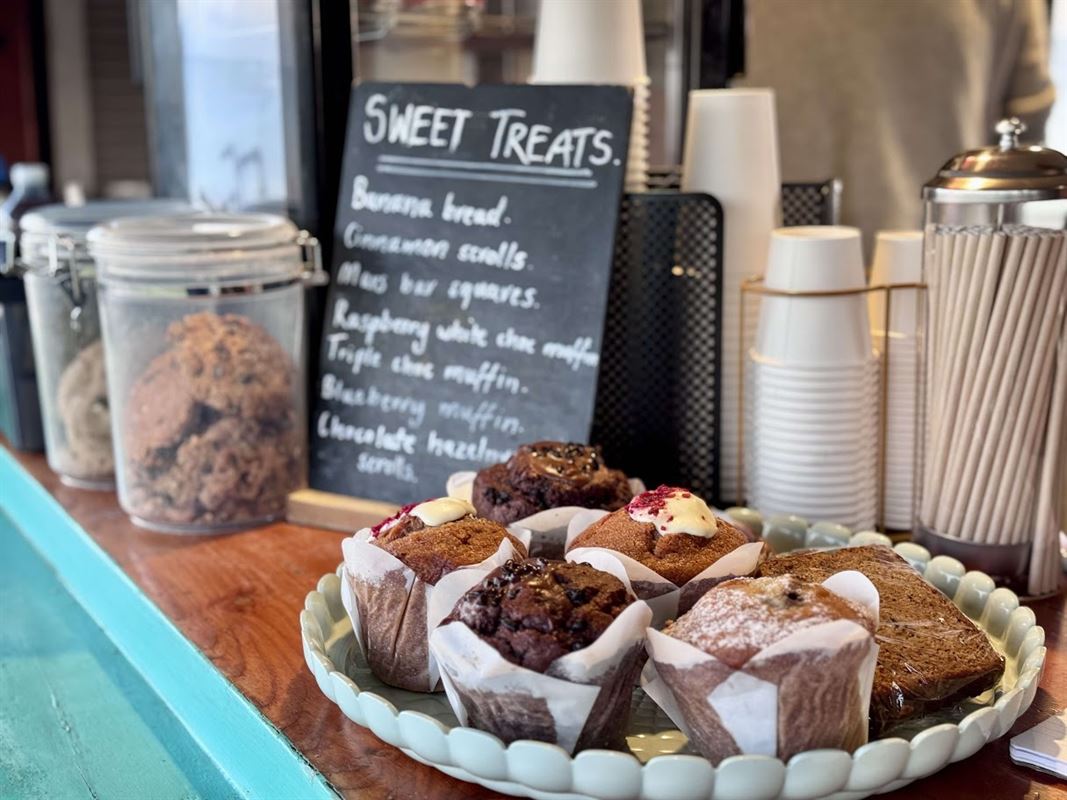 SWEET TREATS.
Banana bread.
Cinnamon scrolls.
Mars bar squares.
Raspberry white choc muffin
Triple choc muffin.
Blueberry muffin.
Chocolate hazelnu
scrolls.